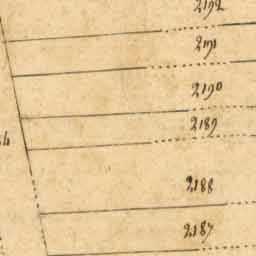 2192
2191
2190
2189
2188
2187